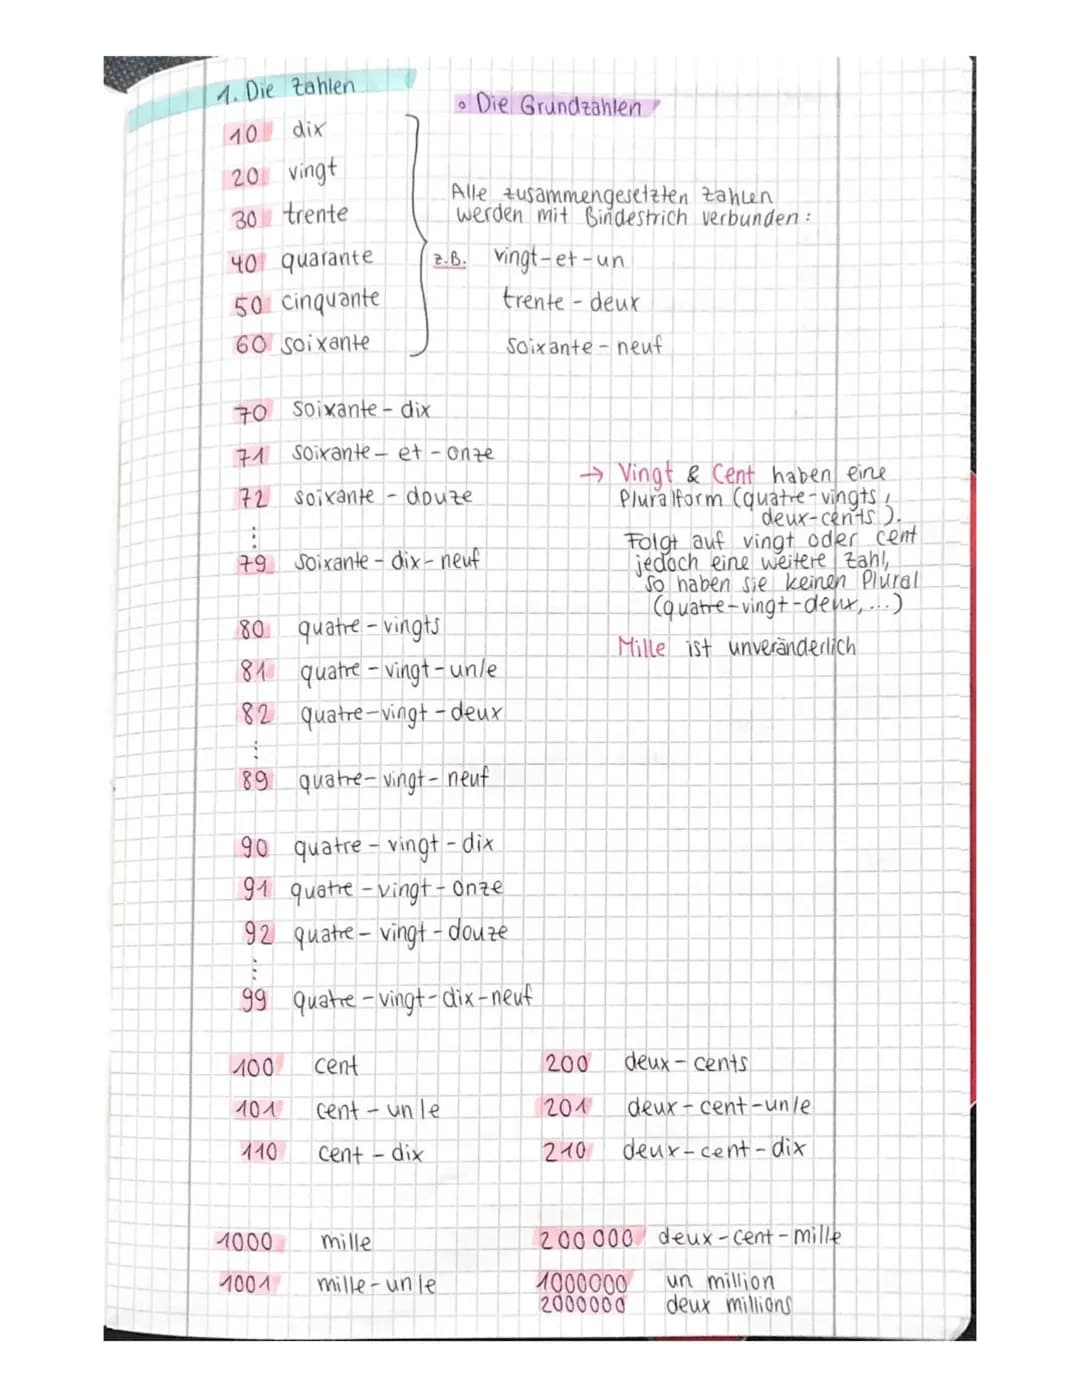 1. Die Zahlen
• Die Grundzahlen
10 dix
20 vingt
30 trente
40 quarante
50 cinquante
60 soixante
Alle zusammengesetzten Zahlen
werden mit Bindestrich verbunden:
z.B. vingt-et-un
trente-deux
soixante-neuf
70 soixante-dix
71 soixante-et-onze
72 soixante-douze
⋮
79 soixante-dix-neuf
→ Vingt & Cent haben eine
Pluralform (quatre-vingts,
deux-cents).
Folgt auf vingt oder cent
jedoch eine weitere Zahl,
so haben sie keinen Plural
(quatre-vingt-deux,...)
Mille ist unveränderlich
80 quatre-vingts
81 quatre-vingt-un/e
82 quatre-vingt-deux
⋮
89 quatre-vingt-neuf
90 quatre-vingt-dix
91 quatre-vingt-onze
92 quatre-vingt-douze
⋮
99 quatre-vingt-dix-neuf
100 cent
101 cent-un/e
110 cent-dix
200 deux-cents
201 deux-cent-un/e
210 deux-cent-dix
1000 mille
1001 mille-un/e
200 000 deux-cent-mille
1000000 un million
2000000 deux millions